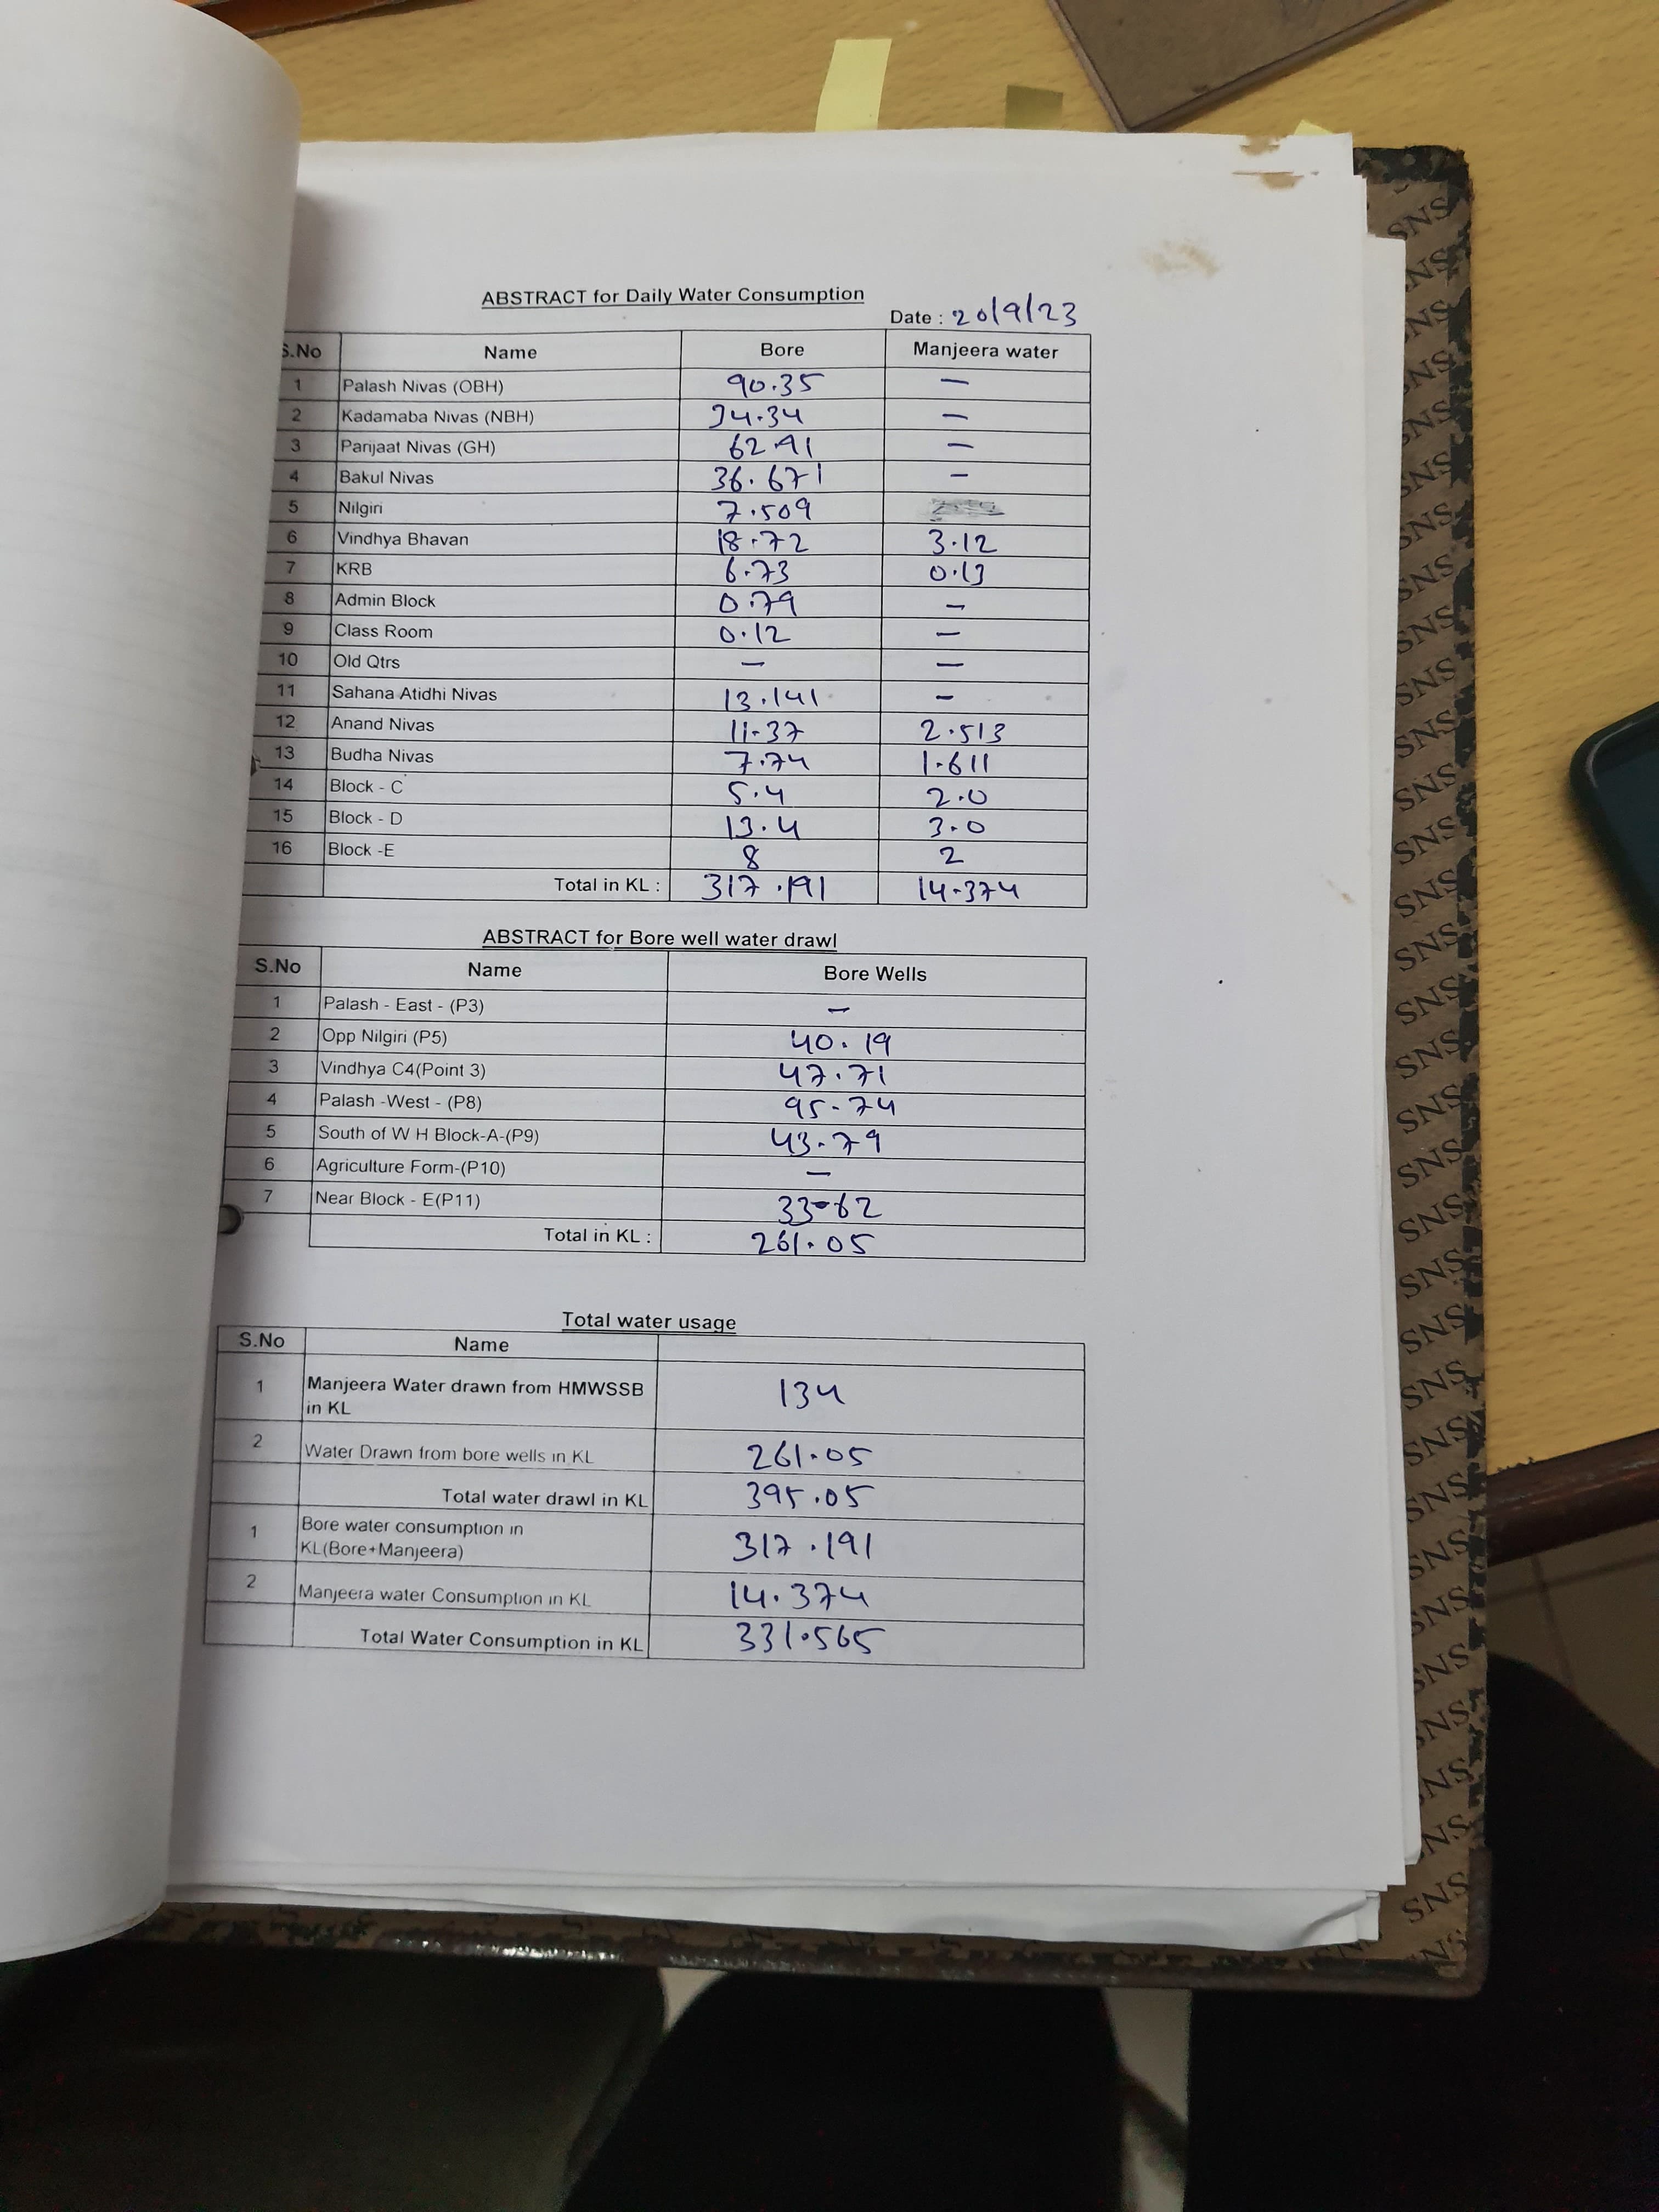 ABSTRACT for Daily Water Consumption
Date : 20/9/23
S.No Name Bore Manjeera water
1 Palash Nivas (OBH) 90.35 –
2 Kadamaba Nivas (NBH) 34.34 –
3 Parijaat Nivas (GH) 62.91 –
4 Bakul Nivas 36.671 –
5 Nilgiri 7.509
6 Vindhya Bhavan 18.72 3.12
7 KRB 6.73 0.13
8 Admin Block 0.79 –
9 Class Room 0.12 –
10 Old Qtrs – –
11 Sahana Atidhi Nivas 13.141 –
12 Anand Nivas 11.37 2.513
13 Budha Nivas 7.74 1.611
14 Block - C 5.4 2.0
15 Block - D 13.4 3.0
16 Block -E 8 2
Total in KL : 317.191 14.374
ABSTRACT for Bore well water drawl
S.No Name Bore Wells
1 Palash - East - (P3) –
2 Opp Nilgiri (P5) 40.19
3 Vindhya C4(Point 3) 47.71
4 Palash -West - (P8) 95.74
5 South of W H Block-A-(P9) 43.79
6 Agriculture Form-(P10) –
7 Near Block - E(P11) 33.62
Total in KL : 261.05
Total water usage
S.No Name
1 Manjeera Water drawn from HMWSSB
in KL 134
2 Water Drawn from bore wells in KL 261.05
Total water drawl in KL 395.05
1 Bore water consumption in
KL(Bore+Manjeera) 317.191
2 Manjeera water Consumption in KL 14.374
Total Water Consumption in KL 331.565